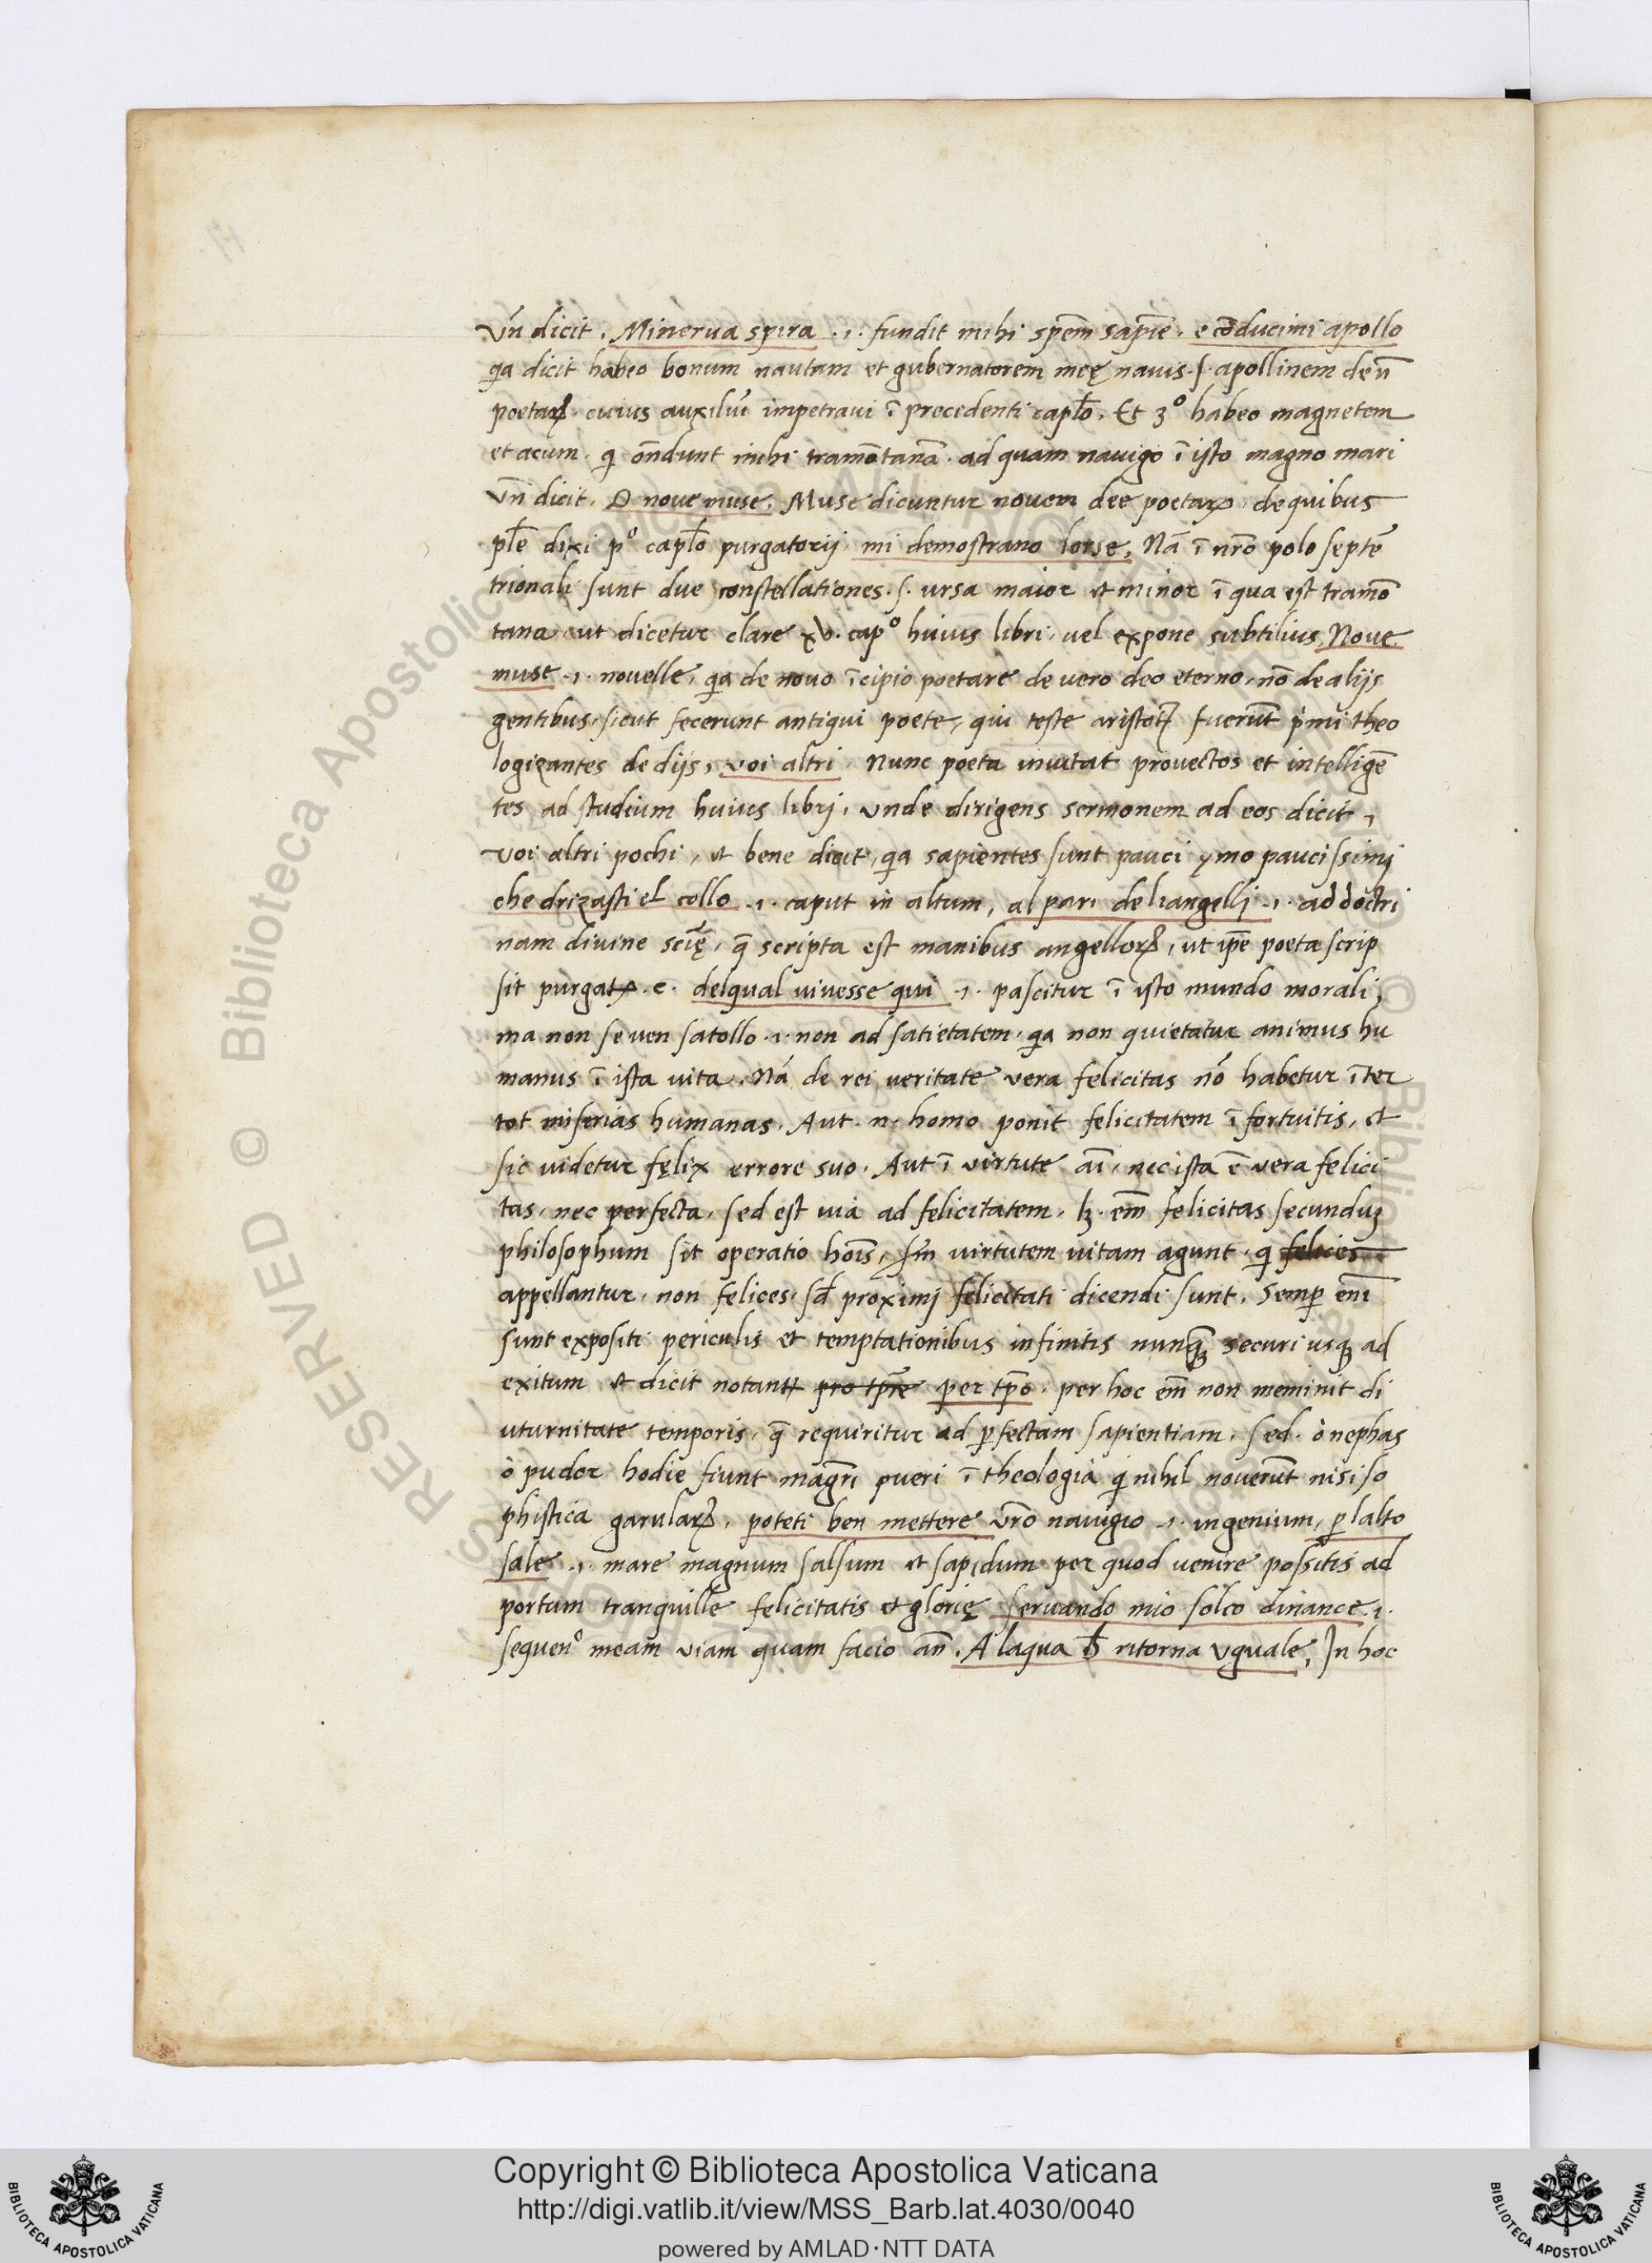 Vń dicit. Minerua spira .i. fundit mihi spem̄ sapie͞. e co͞ducimi apollo
qa dicit habeo bonum nautam et gubernatorem meę nauis .ſ. apollinem deū
poetaꝝ. cuius auxiliū impetraui ī precedenti caplo͞. Et 3º habeo magnetem
et acum qi on͞dunt mihi tramo͞tana͞. ad quam nauigo ī isto magno mari
Vn͞ dicit. O noue muse. Muse dicuntur nouem dee poetaꝝ. de quibus
ple͞ dixi pº caplo͞ purgatorij. mi demostrano lorse, Na͞ ī nr͞o polo septe͞
trionali sunt due constellationes .ſ. ursa maior et minor ī qua est tramo͞
tana. ut dicetur clare xv. capº huius libri. uel expone subtilius, Noue
muse .i. nouelle, qa de nouo īcipio poetare de vero deo eterno, no͞ de alijs
gentibus, sicut fecerunt antiqui poete, qui teste aristoꝷ fuerūt pimi theo
logizantes de dijs, voi altri. Nunc poeta inuitat prouectos et intellige͞
tes ad studium huius librj. vnde dirigens sermonem ad eos dicit,
voi altri pochi, et bene dicit, qa sapientes sunt pauci ymo paucissimj
che drizasti el collo .i. caput in altum, al pari de liangellj .i. ad doctri
nam diuine scię͞, q̄ scripta est manibus angelloꝝ, ut ip͞e poeta scrip
sit purgatꝝ .e. delqual viuesse qui .i. pascitur ī isto mundo morali,
ma non se uen satollo .i. non ad satietatem. qa non quietatur animus hu
manus ī ista vita. Ná de rei veritate vera felicitas nó habetur īter
tot miserias humanas. Aut .n. homo ponit felicitatem ī fortuitis, et
sic videtur fęlix errore suo. Aut ī virtute ai͞, nec ista ē vera felici
tas, nec perfecta, sed est via ad felicitatem. lꝫ. em͞ felicitas secunduꝫ
philosophum sit operatio hoi͞s, sm͞ virtutem vitam agunt. qi felices
appellantur, non felices, sꝺ proximj felicitati dicendi sunt. Semꝑ eni͞
sunt expositi periculis et temptationibus infinitis nunꝗ̄ securi usqꝫ ad
exitum et dicit notantꝷ pro tp͞re per tp͞o. per hoc em͞ non meminit di
uturnitate temporis, q̄ requiritur ad ꝑfectam sapientiam. sed. ò nephas
ò pudor hodie fiunt magr͞i pueri ī theologia qi nihil nouerūt nisi so
phistica garulaꝝ. poteti ben mettere vr͞o nauigio .i. ingenium, ꝑ lalto
sale .i. mare magnum salsum et sapidum per quod venire possitis ad
portum tranquille felicitatis et glorię seruando mio solco dinance .i.
sequenº meam viam quam facio an͞. A laqua ꝺ̄ ritorna vguale, In hoc
Copyright © Biblioteca Apostolica Vaticana
http://digi.vatlib.it/view/MSS_Barb.lat.4030/0040
powered by AMLAD·NTT DATA